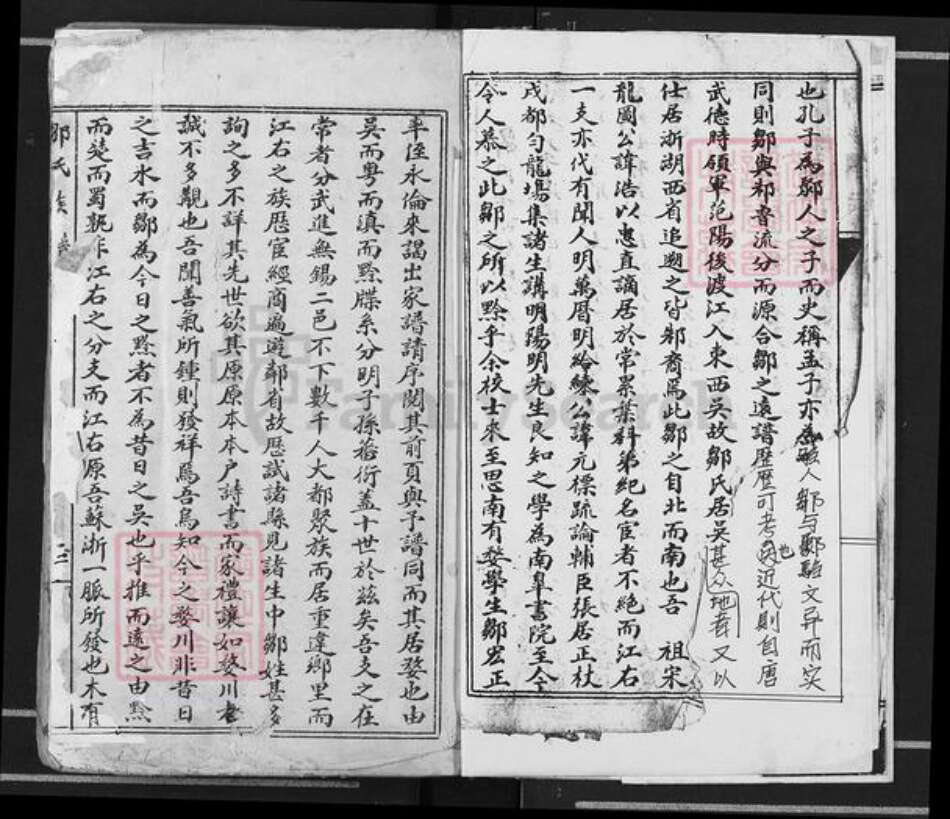 也孔子為鄹人之子而史稱孟子亦為騶人鄒与鄹騶文异而实
同則鄒與邾魯流分而源合鄒之遠譜歷歷可考也近代則自唐
武德時領軍范陽後渡江入東西吳故鄒氏居吳甚众地者又以
仕居浙湖西省追遡之皆邾裔焉此鄒之自北而南也吾 祖宋
龍圖公諱浩以忠直謫居於常累葉科第紀名宦者不絕而江右
一支亦代有聞人明萬曆明給練公諱元標疏論輔臣張居正杖
戍都勻龍塲集諸生講明陽明先生良知之學為南臯書院至今
令人慕之此鄒之所以黔乎余校士來至思南有婺學生鄒宏正
率侄永倫來謁出家譜請序閱其前頁與予譜同而其居婺也由
吳而粤而滇而黔牒系分明子孫蕃衍盖十世於兹矣吾支之在
常者分武進無錫二邑不下數千人大都聚族而居重違鄉里而
江右之族歷宦經商遍遊鄰省故歷試諸縣見諸生中鄒姓甚多
詢之多不詳其先世欲其原原本本户詩書而家禮讓如婺川者
誠不多觏也吾聞善氣所鍾則發祥焉吾烏知今之婺川非昔日
之吉水而鄒為今日之黔者不為昔日之吳也乎推而遠之由黔
而滇而蜀孰非江右之分支而江右原吾蘇浙一脈所發也木有
鄒氏族